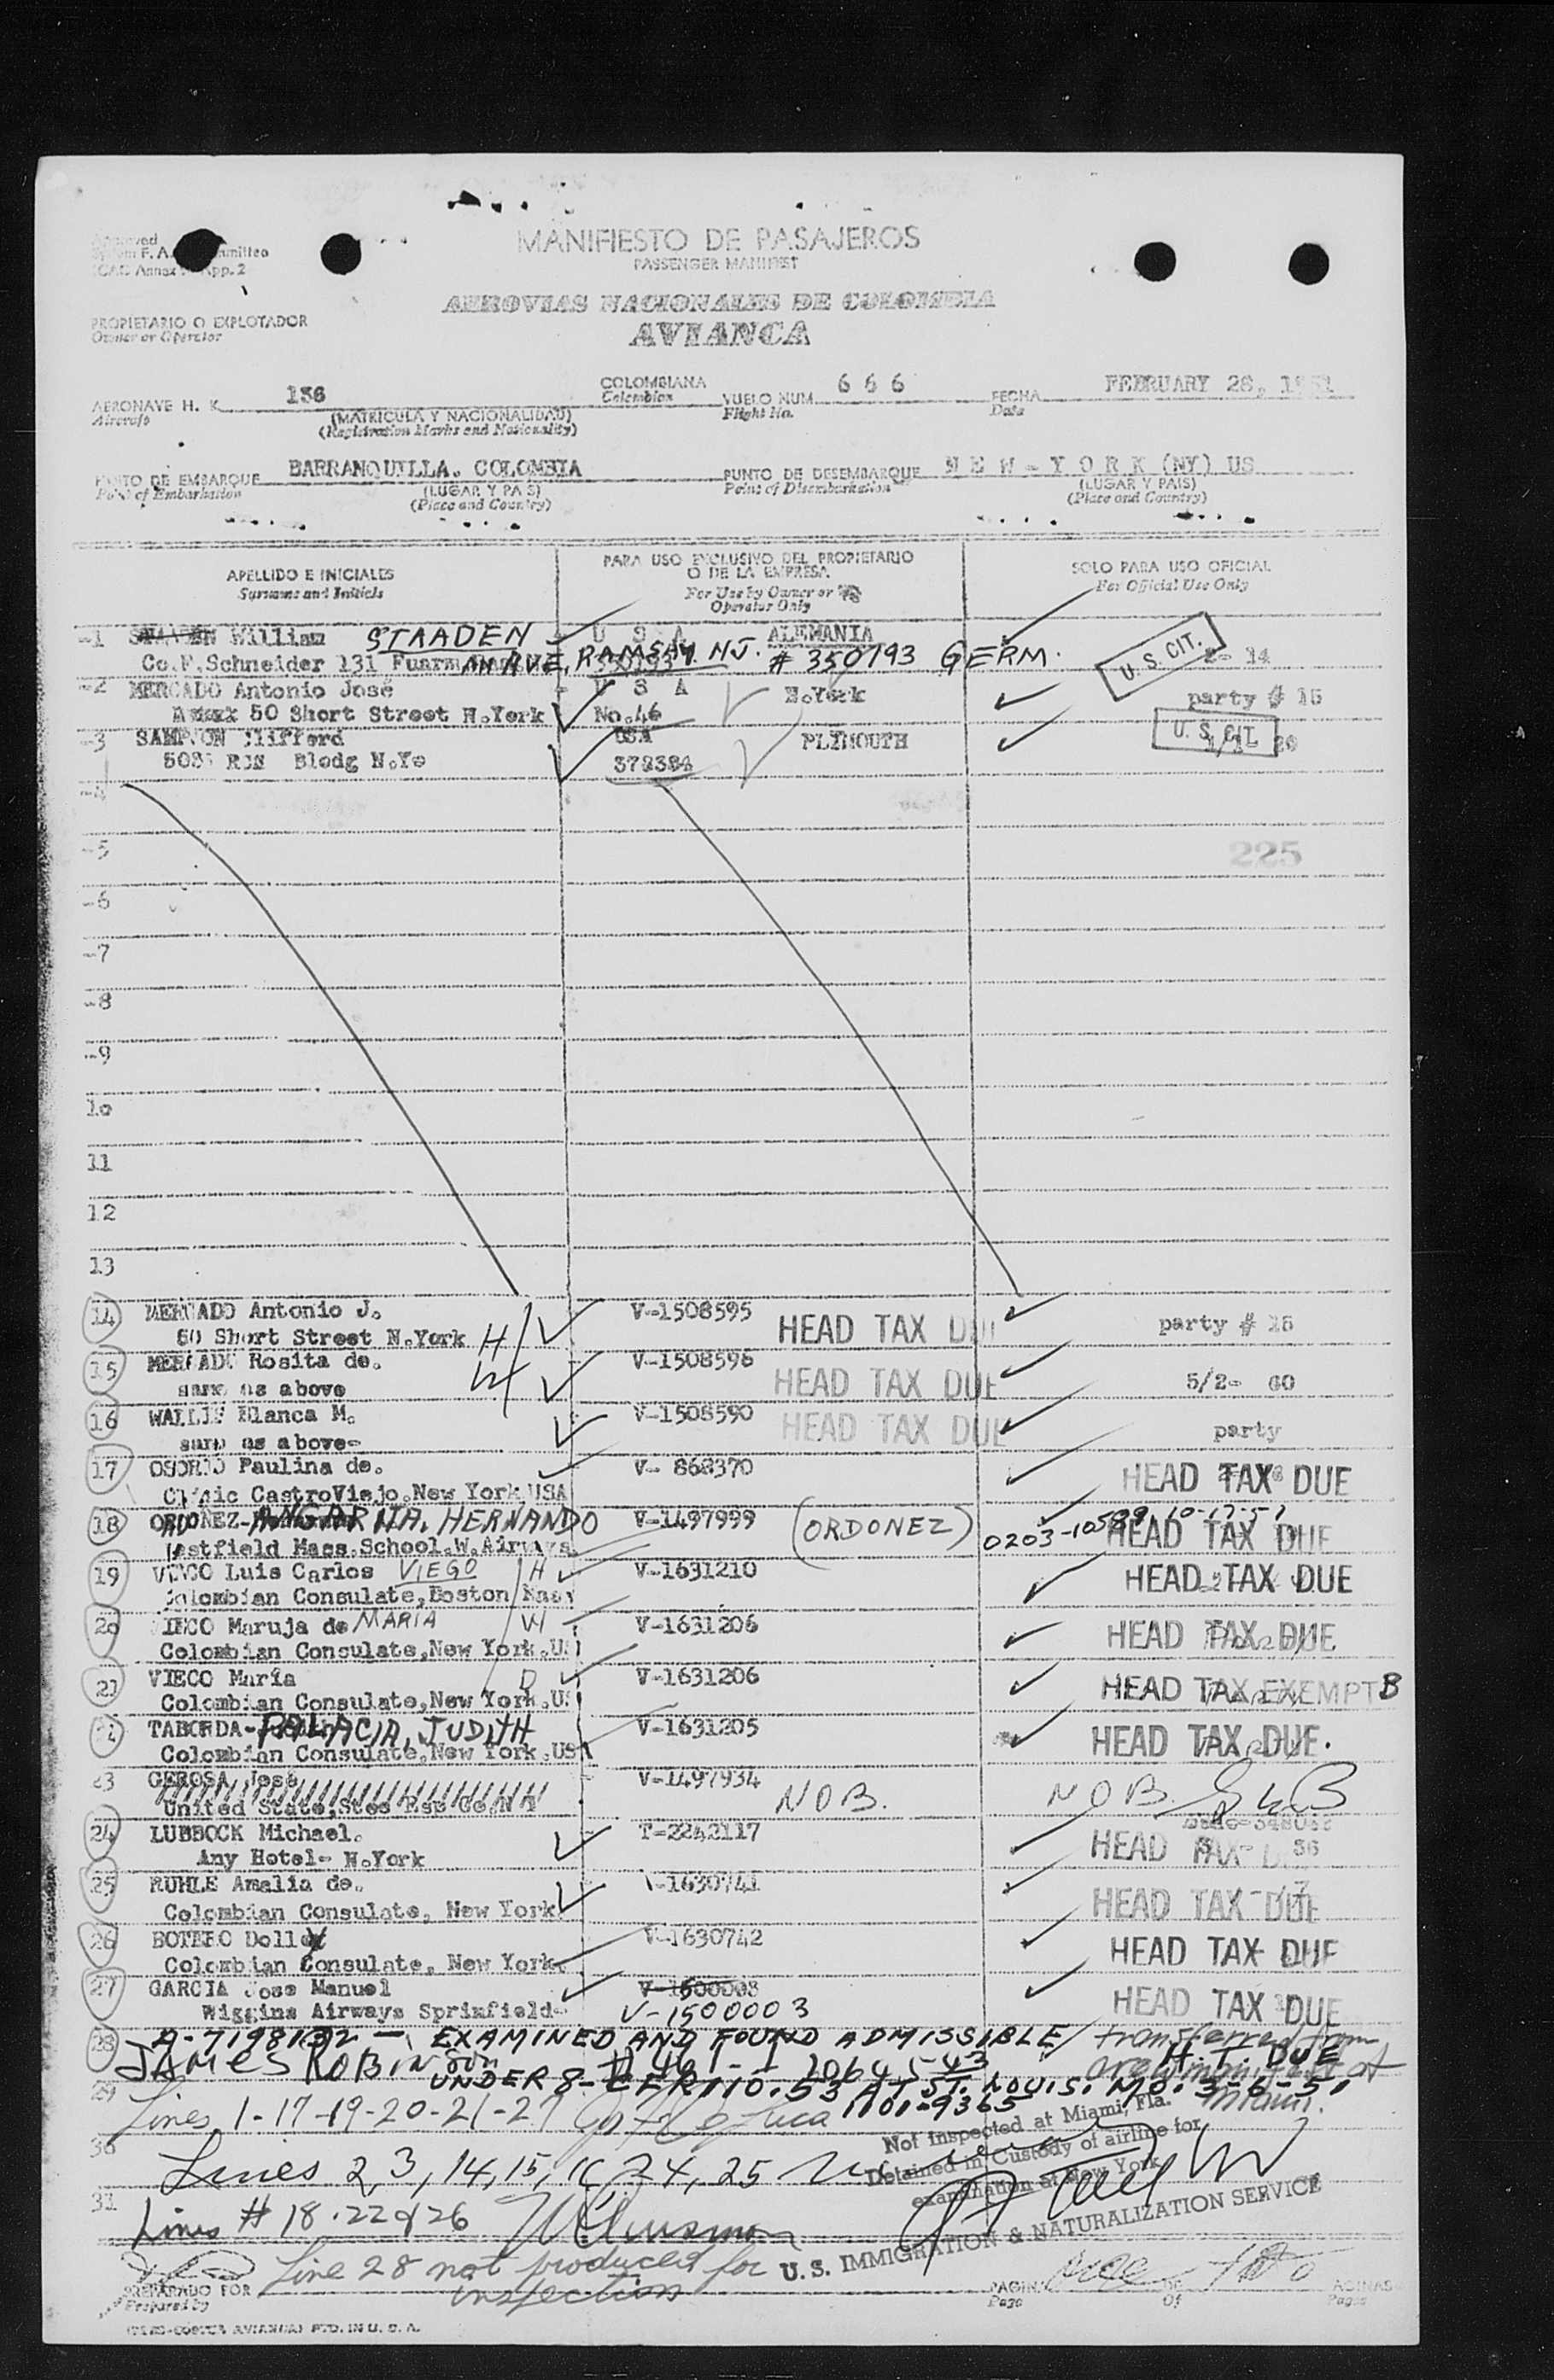 MANIFIESTO DE PASAJEROS
PASSENGER MANIFEST
ICAO Annex App. 2
AEROVIAS NACIONALES DE COLOMBIA
AVIANCA
PROPIETARIO O EXPLOTADOR
Owner or Operator
AERONAVE H. K. 136 COLOMBIANA VUELO NUM. 6 6 6 FECHA FEBRUARY 28, 1951
Aircraft Colombian Flight No. Date
(MATRICULA Y NACIONALIDAD)
(Registration Marks and Nationality)
PUNTO DE EMBARQUE BARRANQUILLA. COLOMBIA PUNTO DE DESEMBARQUE N E W - Y O R K (NY) US
Point of Embarkation (LUGAR Y PAIS) Point of Disembarkation (LUGAR Y PAIS)
(Place and Country) (Place and Country)
APELLIDO E INICIALES PARA USO EXCLUSIVO DEL PROPIETARIO O DE LA EMPRESA SOLO PARA USO OFICIAL
Surname and Initials For Use by Owner or Operator Only For Official Use Only
-1 William STAADEN U S A ALEMANIA U. S. CIT.
Co.F.Schneider 131 AVE, RAMSAY. NJ. # 350193 GERM. 14
-2 MERCADO Antonio José U S A N.York party # 15
50 Short Street N.York No.46
-3 SAMPSON Clifford USA PLYMOUTH U. S. CIT.
Blodg N.Yo 372384
-4
-5 225
-6
-7
-8
-9
10
11
12
13
14 MERCADO Antonio J. H V-1508595 HEAD TAX DUE party # 15
50 Short Street N.York
15 MERCADO Rosita de. W V-1508596 HEAD TAX DUE 5/2- 60
same as above
16 WALLIS Blanca M. V-1508590 HEAD TAX DUE party
same as above-
17 OSORIO Paulina de. V- 868370 HEAD TAX DUE
Clinic CastroViejo.New York USA
18 ORDONEZ-ANGARITA, HERNANDO V-1497999 (ORDONEZ) 0203-10589 10-17-51 HEAD TAX DUE
Westfield Mass.School.W.Airways.
19 VIECO Luis Carlos VIEGO H V-1631210 HEAD TAX DUE
Colombian Consulate,Boston Mass
20 VIECO Maruja de MARIA W V-1631206 HEAD TAX DUE
Colombian Consulate,New York.US
21 VIECO María D V-1631206 HEAD TAX EXEMPT B
Colombian Consulate,New York.US
22 TABORDA-PALACIA, JUDITH V-1631205 HEAD TAX DUE.
Colombian Consulate,New York.USA
23 GEROSA José V-1497934 NOB. NOB.
United State,
24 LUBBOCK Michael. T-2242117 HEAD TAX
Any Hotel- N.York
25 RUHLE Amalia de. V-1630741 HEAD TAX DUE
Colombian Consulate, New York.
26 BOTERO Dolly V-1630742 HEAD TAX DUE
Colombian Consulate, New York.
27 GARCIA Jose Manuel V-1500003 HEAD TAX DUE
Wiggins Airways Sprinfield- V-1500003
28 A-7198132 - EXAMINED AND FOUND ADMISSIBLE transferred from
JAMES ROBINSON H.T. DUE
29 UNDER 8-CFR 110.53 AT ST. LOUIS. MO. 3-6-51 at Miami.
Lines 1-17-19-20-21-27 1101-9365
30 Not inspected at Miami, Fla.
Lines 2, 3, 14, 15, 16, 24, 25 Detained in Custody of airline for
31 examination at New York
Lines # 18.22 & 26
U.S. IMMIGRATION & NATURALIZATION SERVICE
Line 28 not produced for
inspection
PREPARADO POR PAGINA DE PAGINAS
Prepared by Page Of Pages
PTD. IN U. S. A.